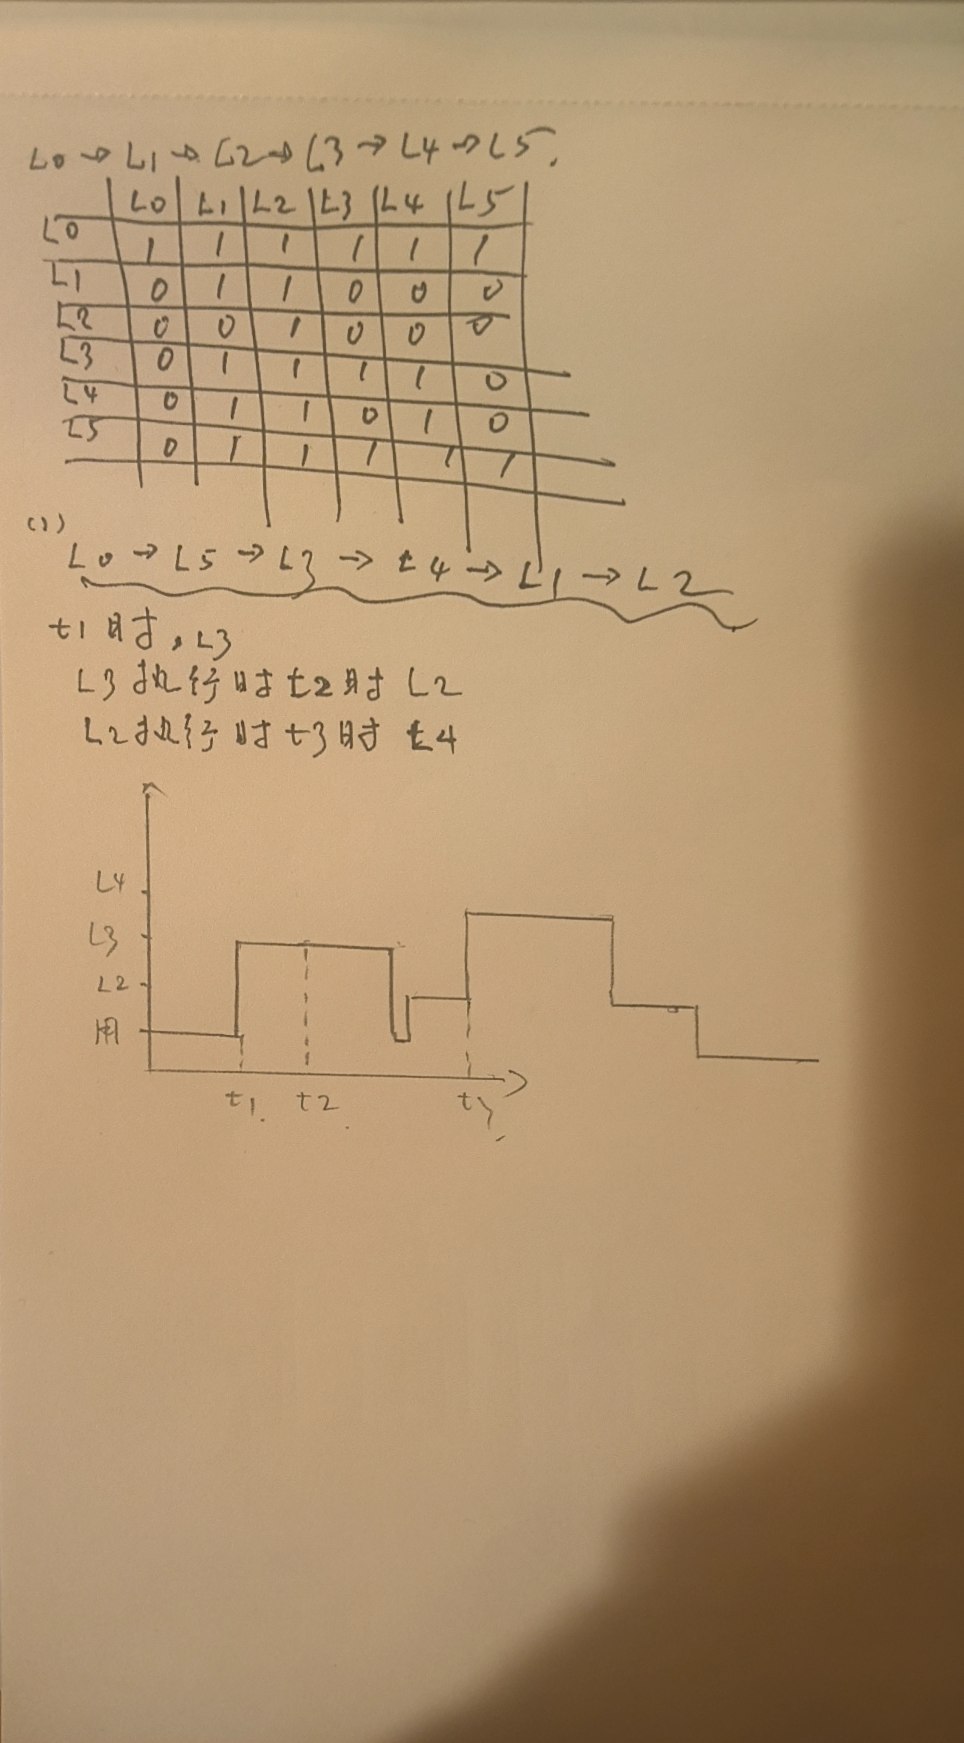 L0 → L1 → L2 → L3 → L4 → L5.
L0 L1 L2 L3 L4 L5
L0 1 1 1 1 1 1
L1 0 1 1 0 0 0
L2 0 0 1 0 0 0
L3 0 1 1 1 1 0
L4 0 1 1 0 1 0
L5 0 1 1 1 1 1
(1)
L0 → L5 → L3 → L4 → L1 → L2
t1时, L3
L3执行时t2时 L2
L2执行时t3时 L4
L4
L3
L2
用
t1 t2